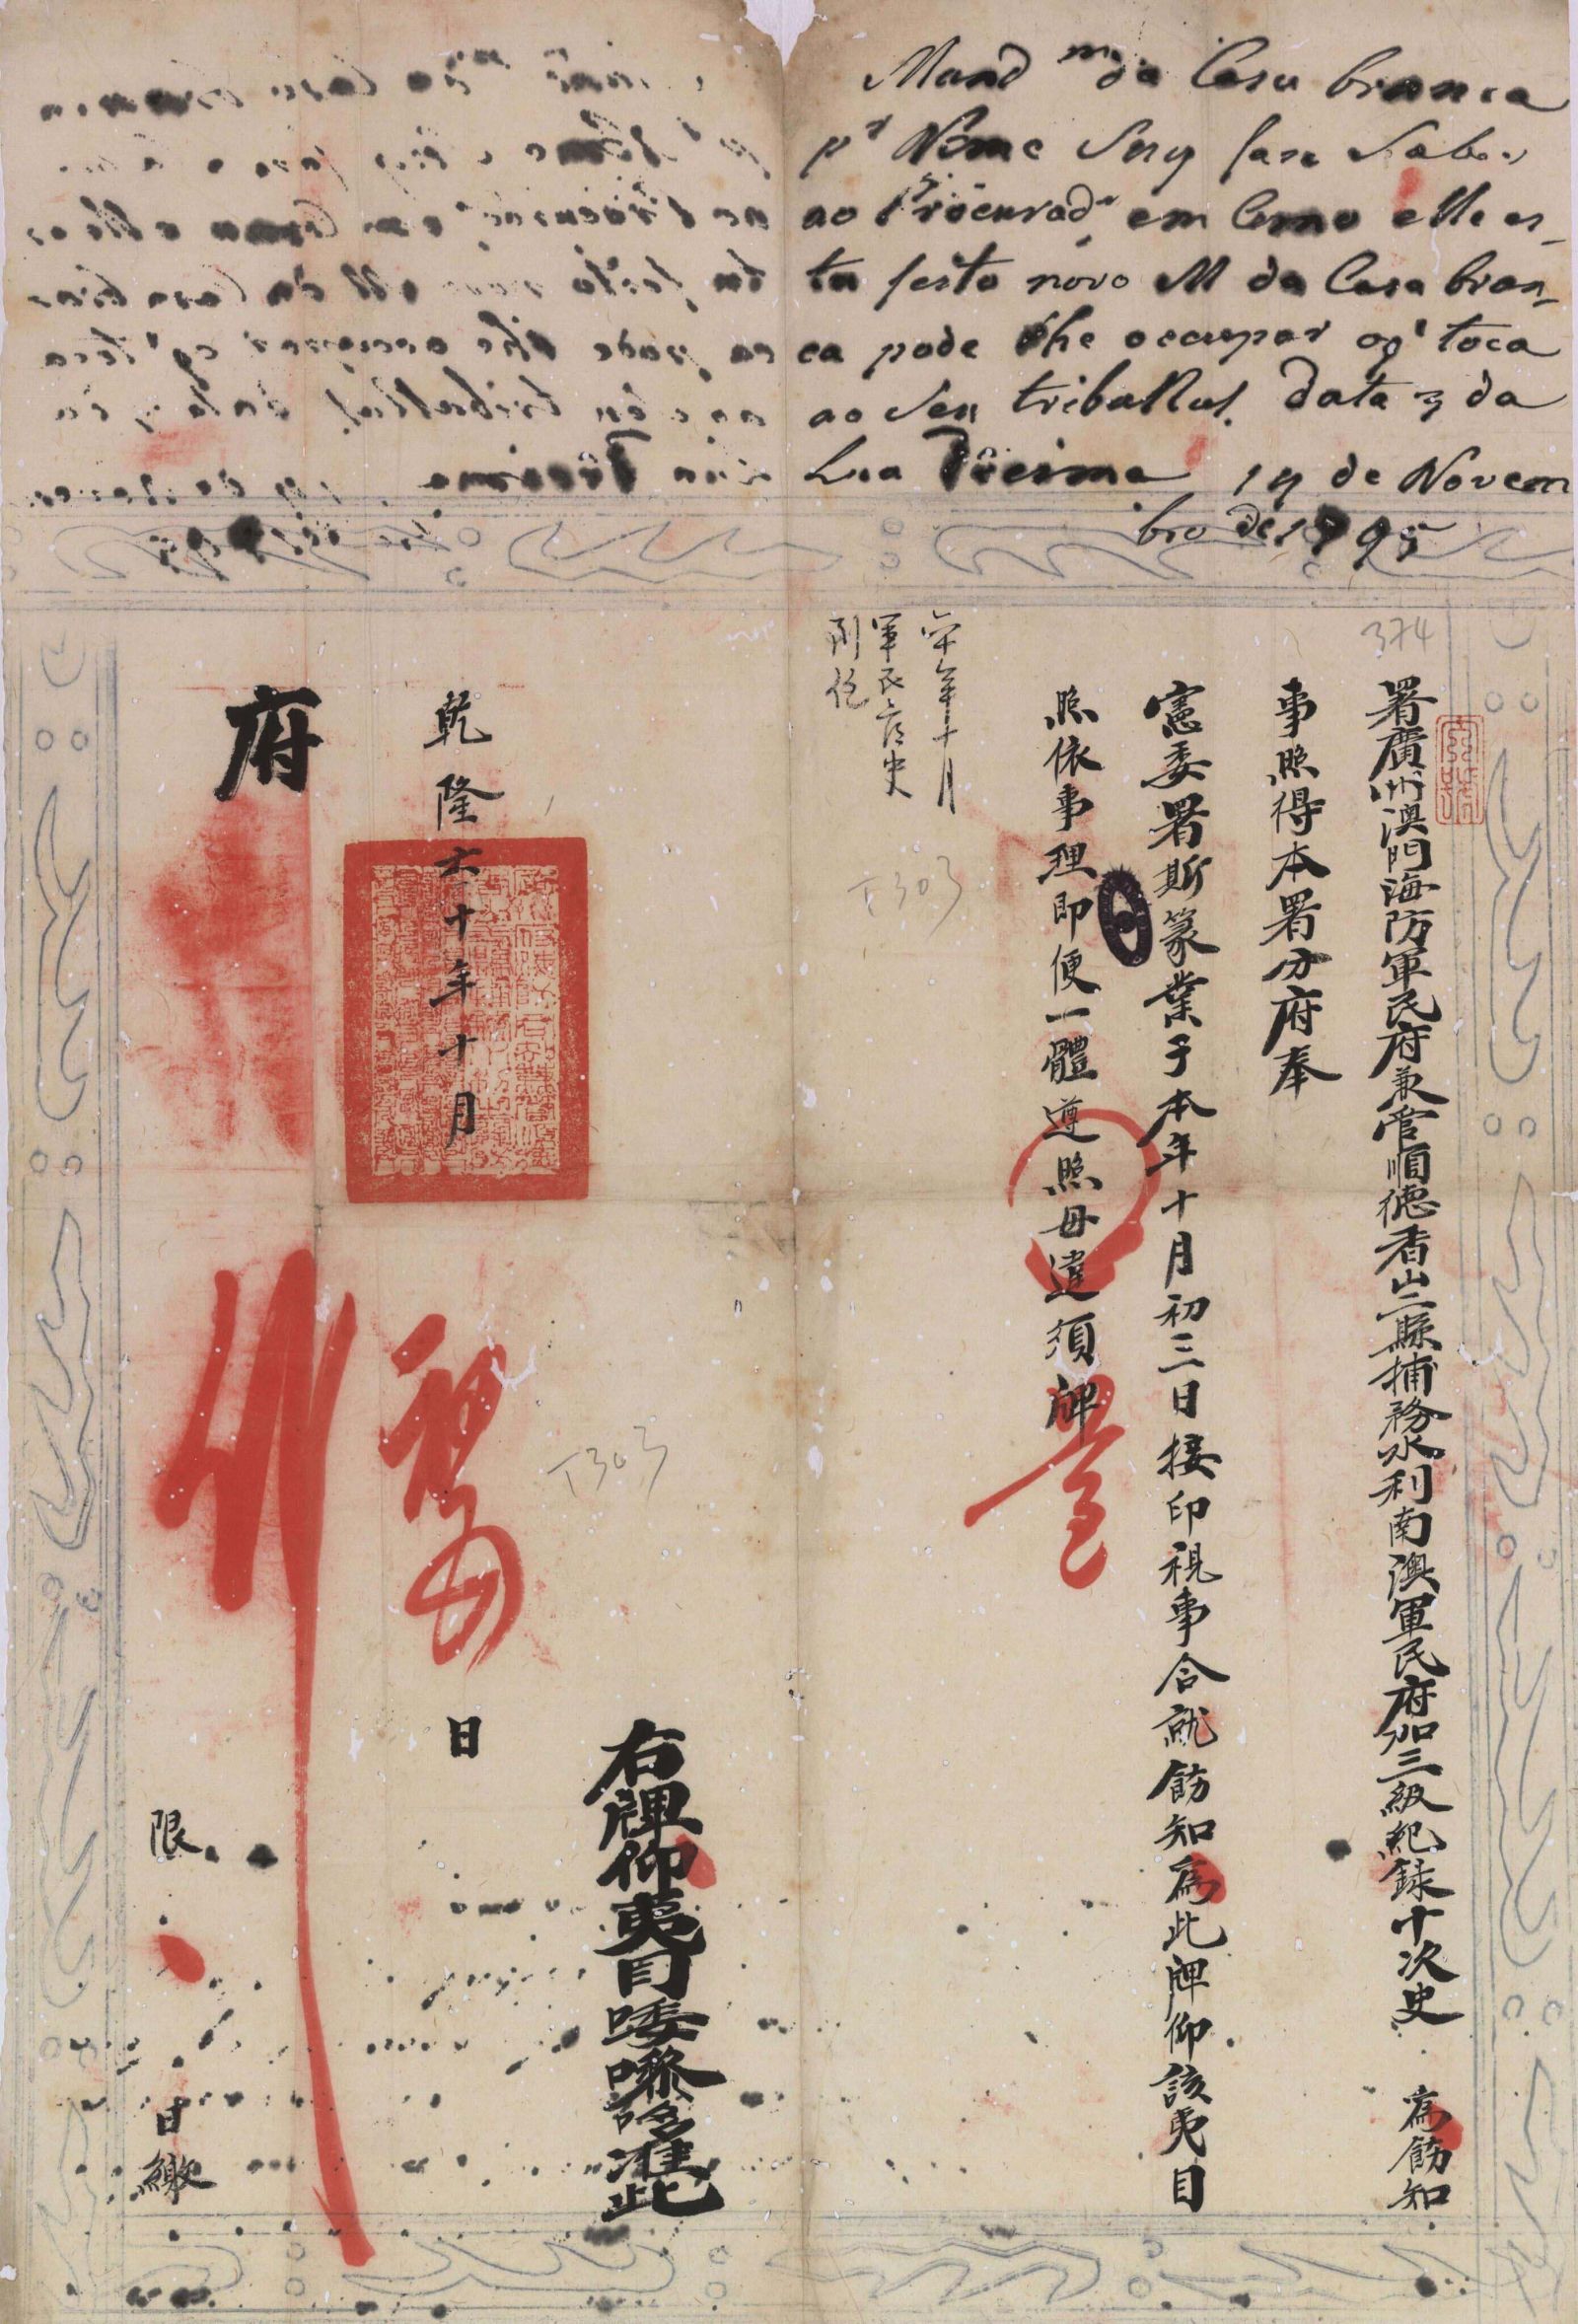 Mand^m da Casa branca
p^r Nome Suy fase Saber
ao Procurad^r em Como elle es-
ta feito novo M da Casa bran-
ca pode lhe occupar oq' toca
ao Seu tribunal. Data 3 da
Lua Decima 14 de Novem
bro de 1795
374
署廣州澳門海防軍民府兼管順德香山二縣捕務水利南澳軍民府加三級紀錄十次史 為飭知
事照得本署分府奉
憲委署斯篆業于本年十月初三日接印視事合就飭知為此牌仰該夷目
照依事理即便一體遵照毋違須牌
六十年十月
軍民府史
T303
右牌仰夷目唩嚟哆准此
T303
乾隆六十年十月 日
府
限 日繳